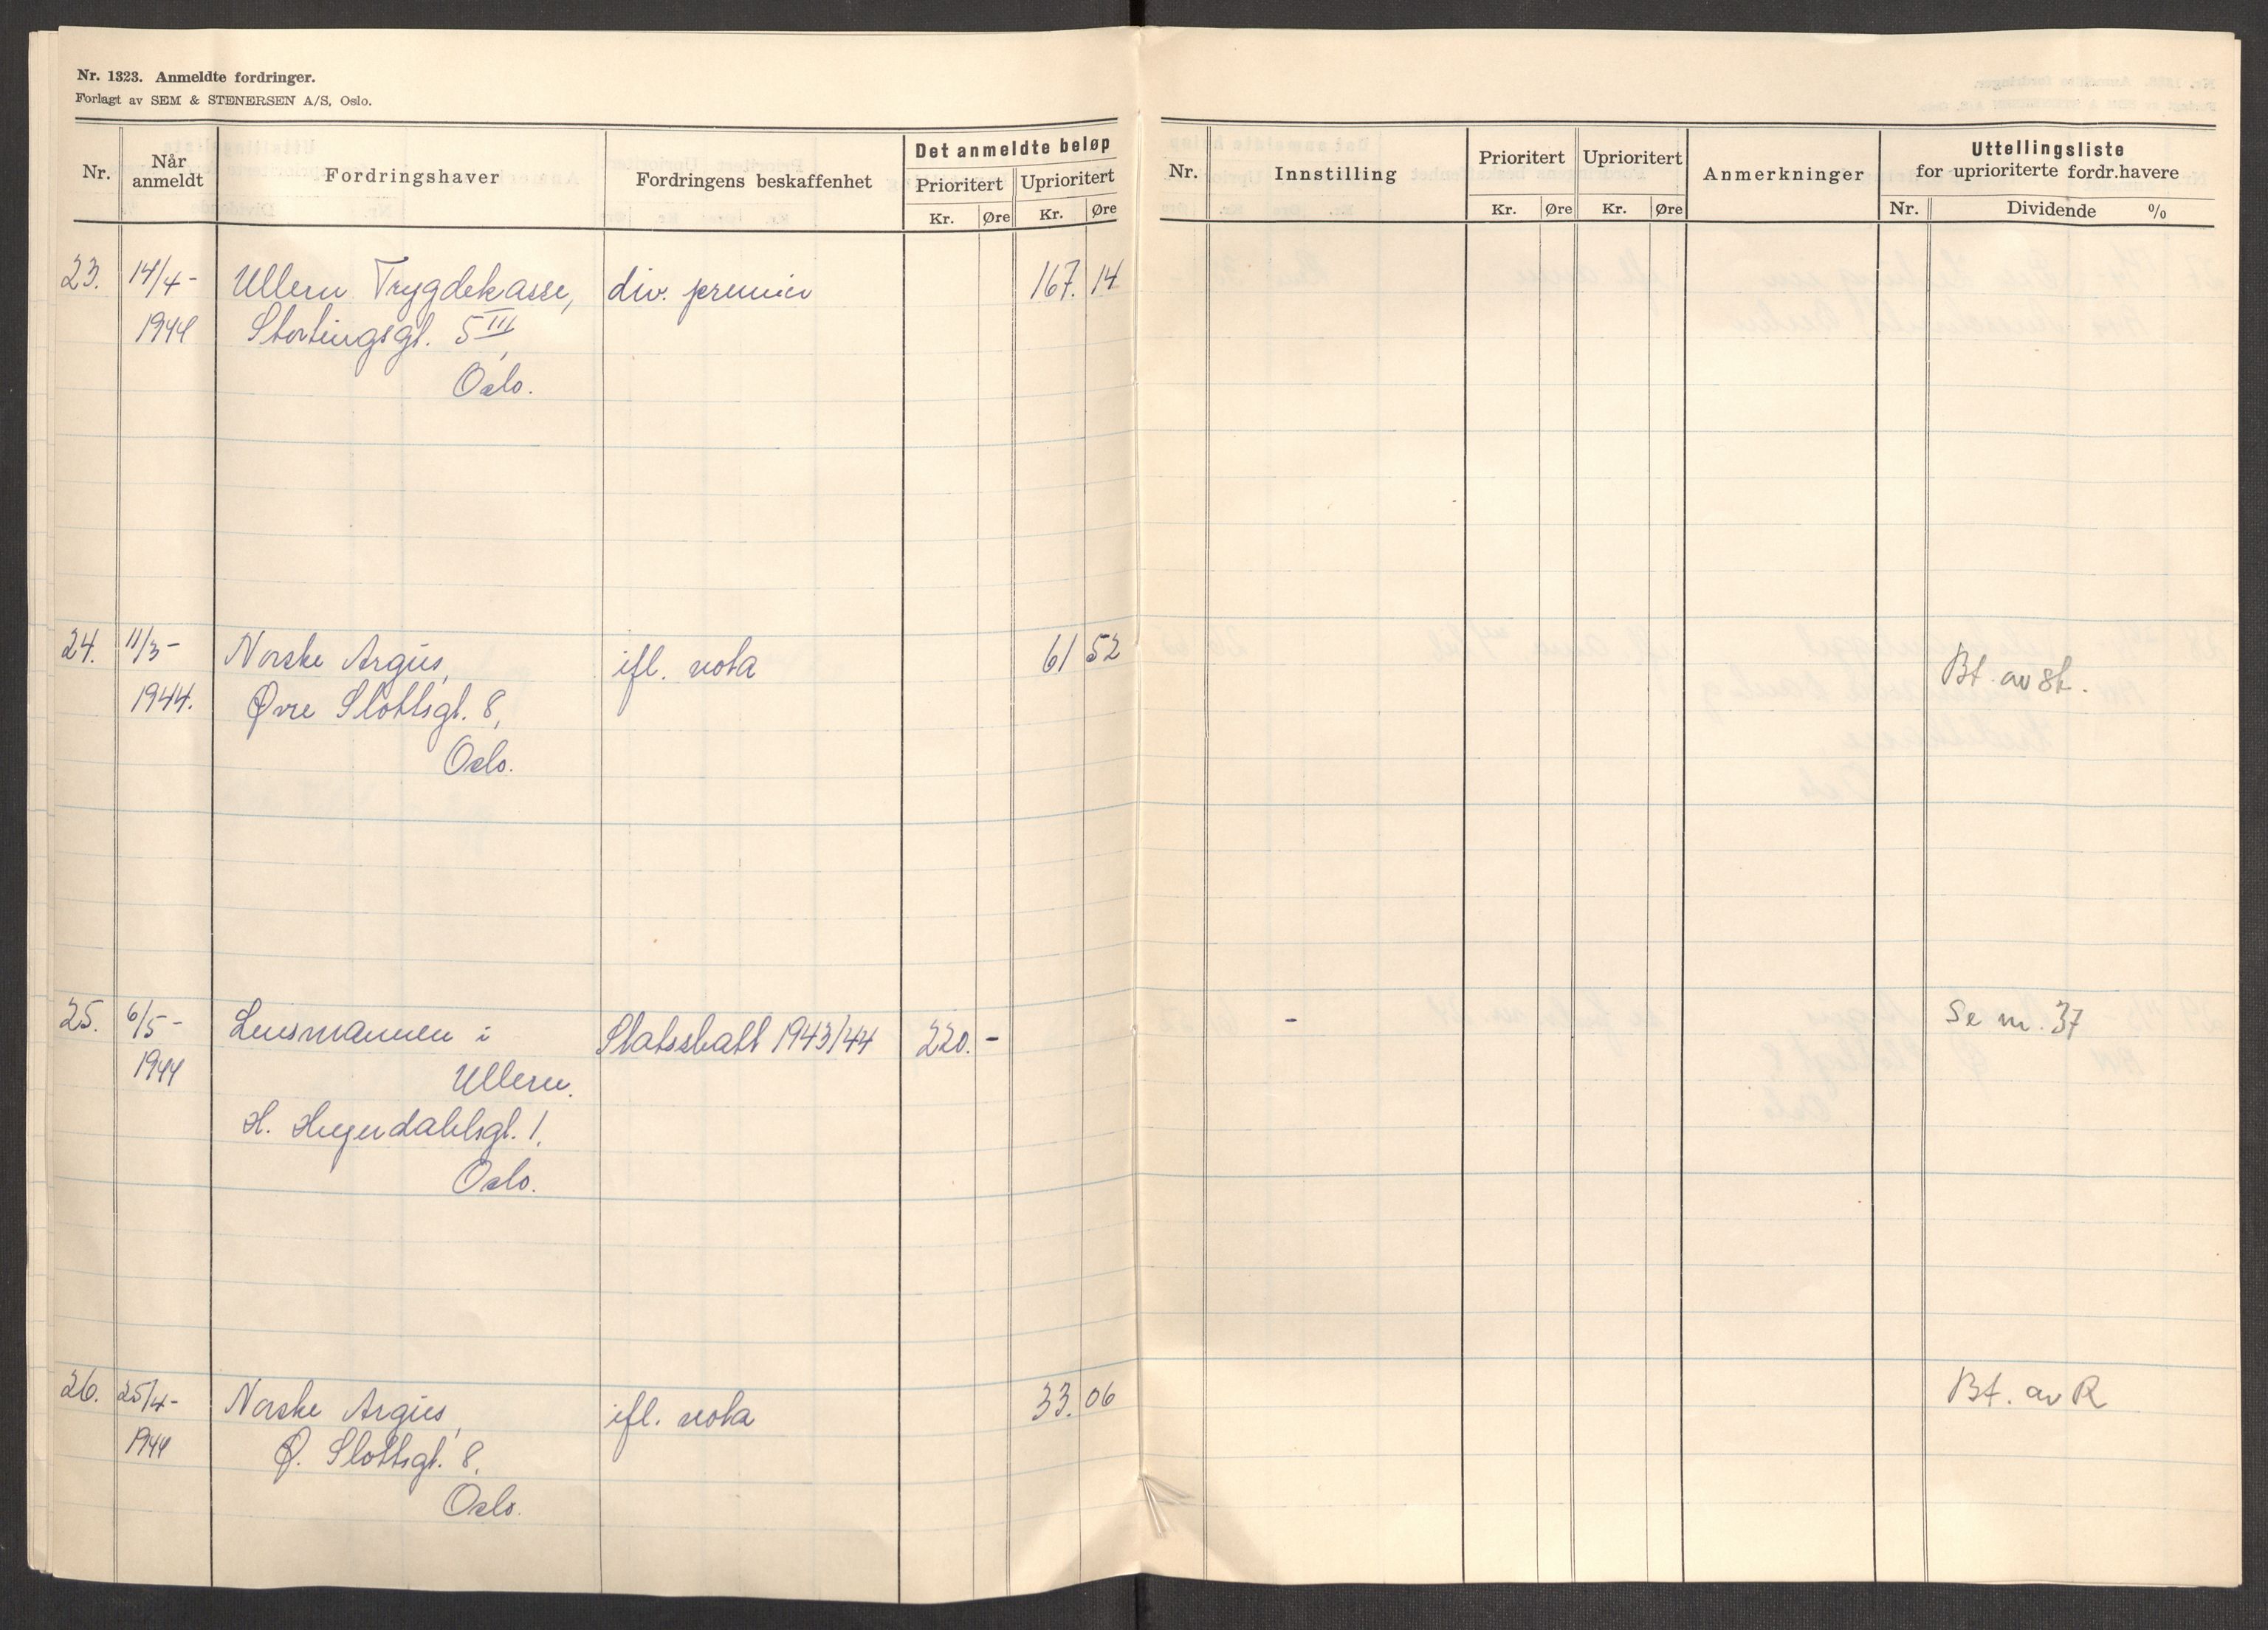 Nr. 1323. Anmeldte fordringer.
Forlagt av SEM & STENERSEN A/S, Oslo.
Nr.
Når anmeldt
Fordringshaver
Fordringens beskaffenhet
Det anmeldte beløp
Prioritert
Uprioritert
Kr. Øre Kr. Øre
Nr.
Innstilling
Prioritert
Uprioritert
Kr. Øre Kr. Øre
Anmerkninger
Uttellingsliste
for uprioriterte fordr.havere
Nr. Dividende %
23. 14/4- Ullern Trygdekasse, div. premier 167. 14
1944 Stortingsgt. 5 III,
Oslo.
24. 11/3- Norske Argus, ifl. nota 61 52 Bt. av St.
1944. Øvre Slottsgt. 8,
Oslo.
25. 6/5- Lensmannen i Statsskatt 1943/44 220. - - Se nr. 37
1944 Ullern.
H. Heyerdahlsgt. 1.
Oslo.
26. 25/4- Norske Argus, ifl. nota 33. 06 Bt. av R
1944 Ø. Slottsgt. 8.
Oslo.